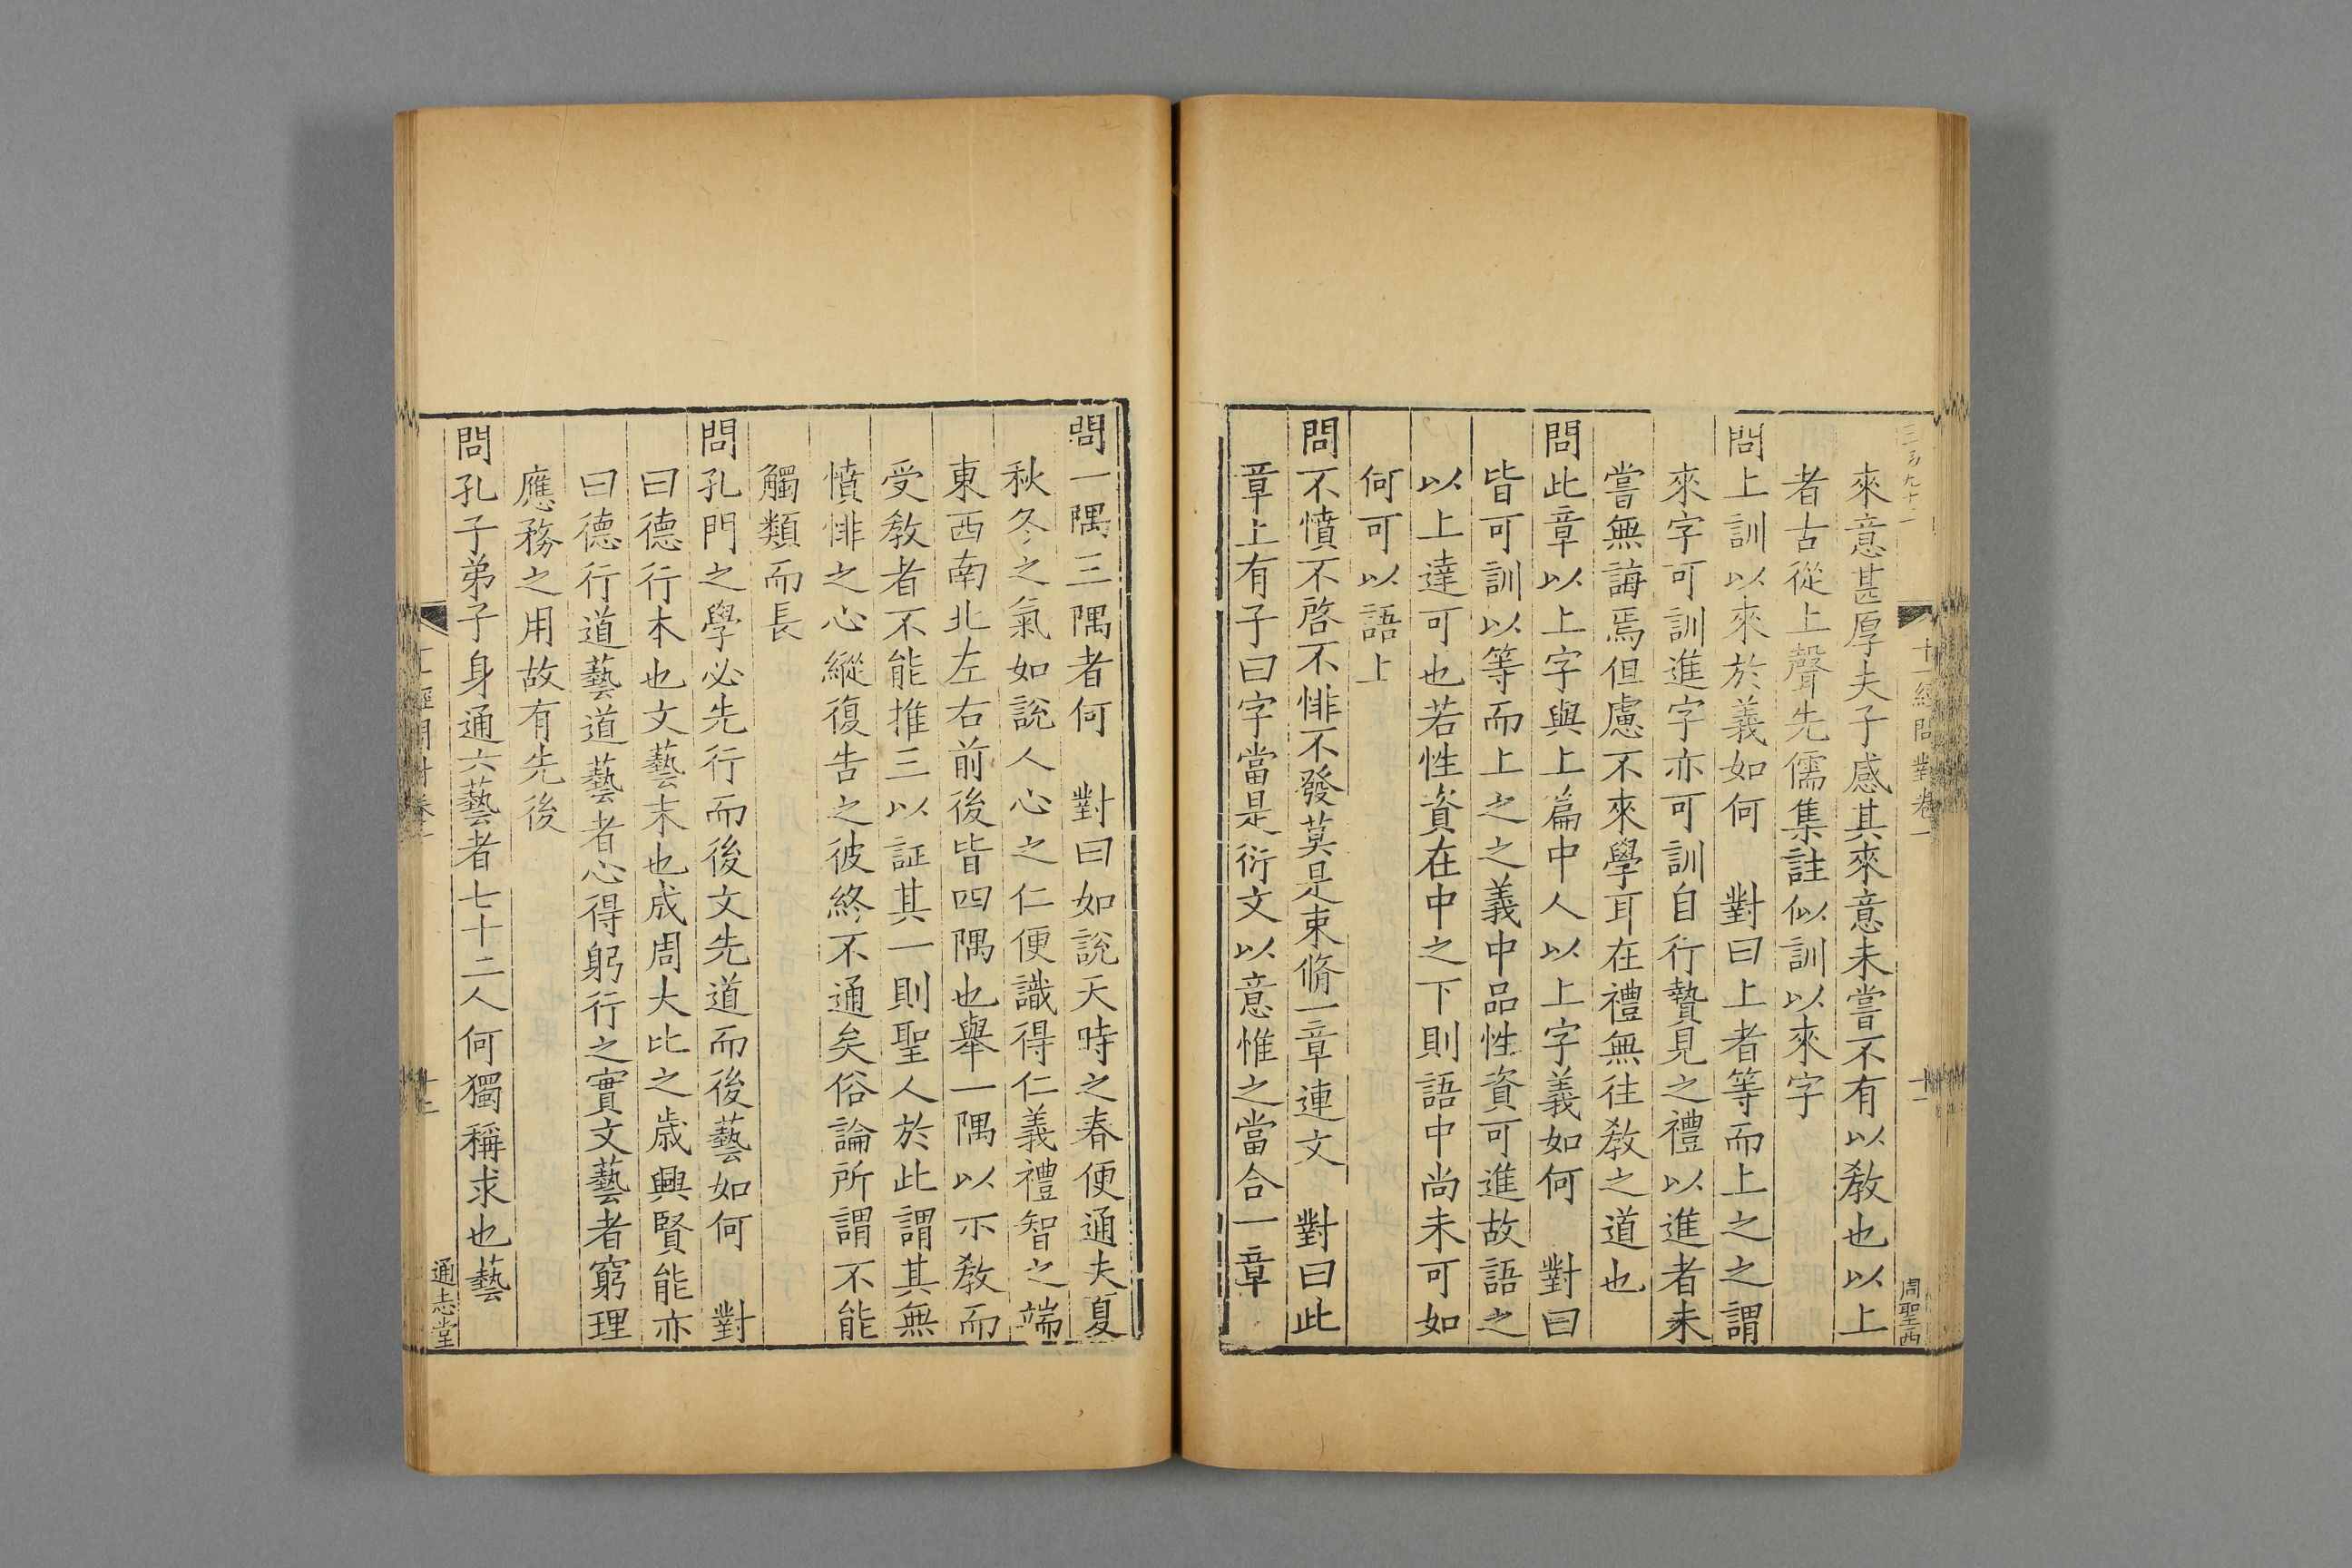 十一經問對卷一
十一
周聖西
來意甚厚夫子感其來意未嘗不有以教也以上
者古從上聲先儒集註似訓以來字
問上訓以來於義如何　對曰上者等而上之之謂
來字可訓進字亦可訓自行贄見之禮以進者未
嘗無誨焉但慮不來學耳在禮無往教之道也
問此章以上字與上篇中人以上字義如何　對曰
皆可訓以等而上之之義中品性資可進故語之
以上達可也若性資在中之下則語中尚未可如
何可以語上
問不憤不啓不悱不發莫是束脩一章連文　對曰此
章上有子曰字當是衍文以意惟之當合一章
問一隅三隅者何　對曰如說天時之春便通夫夏
秋冬之氣如說人心之仁便識得仁義禮智之端
東西南北左右前後皆四隅也舉一隅以示教而
受教者不能推三以証其一則聖人於此謂其無
憤悱之心縱復告之彼終不通矣俗論所謂不能
觸類而長
問孔門之學必先行而後文先道而後藝如何　對
曰德行本也文藝末也成周大比之歲興賢能亦
曰德行道藝道藝者心得躬行之實文藝者窮理
應務之用故有先後
問孔子弟子身通六藝者七十二人何獨稱求也藝
通志堂